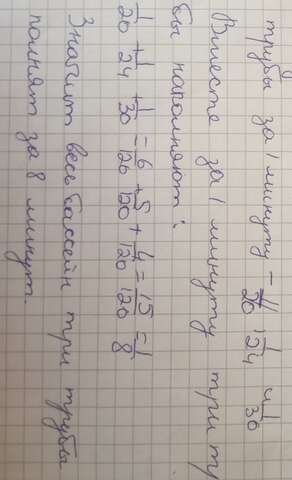 трубы за 1 минуту – 1/20, 1/24 и 1/30
Вместе за 1 минуту три тр
бы наполняют:
1/20 + 1/24 + 1/30 = 6/120 + 5/120 + 4/120 = 15/120 = 1/8
Значит весь бассейн три трубы
полнят за 8 минут.